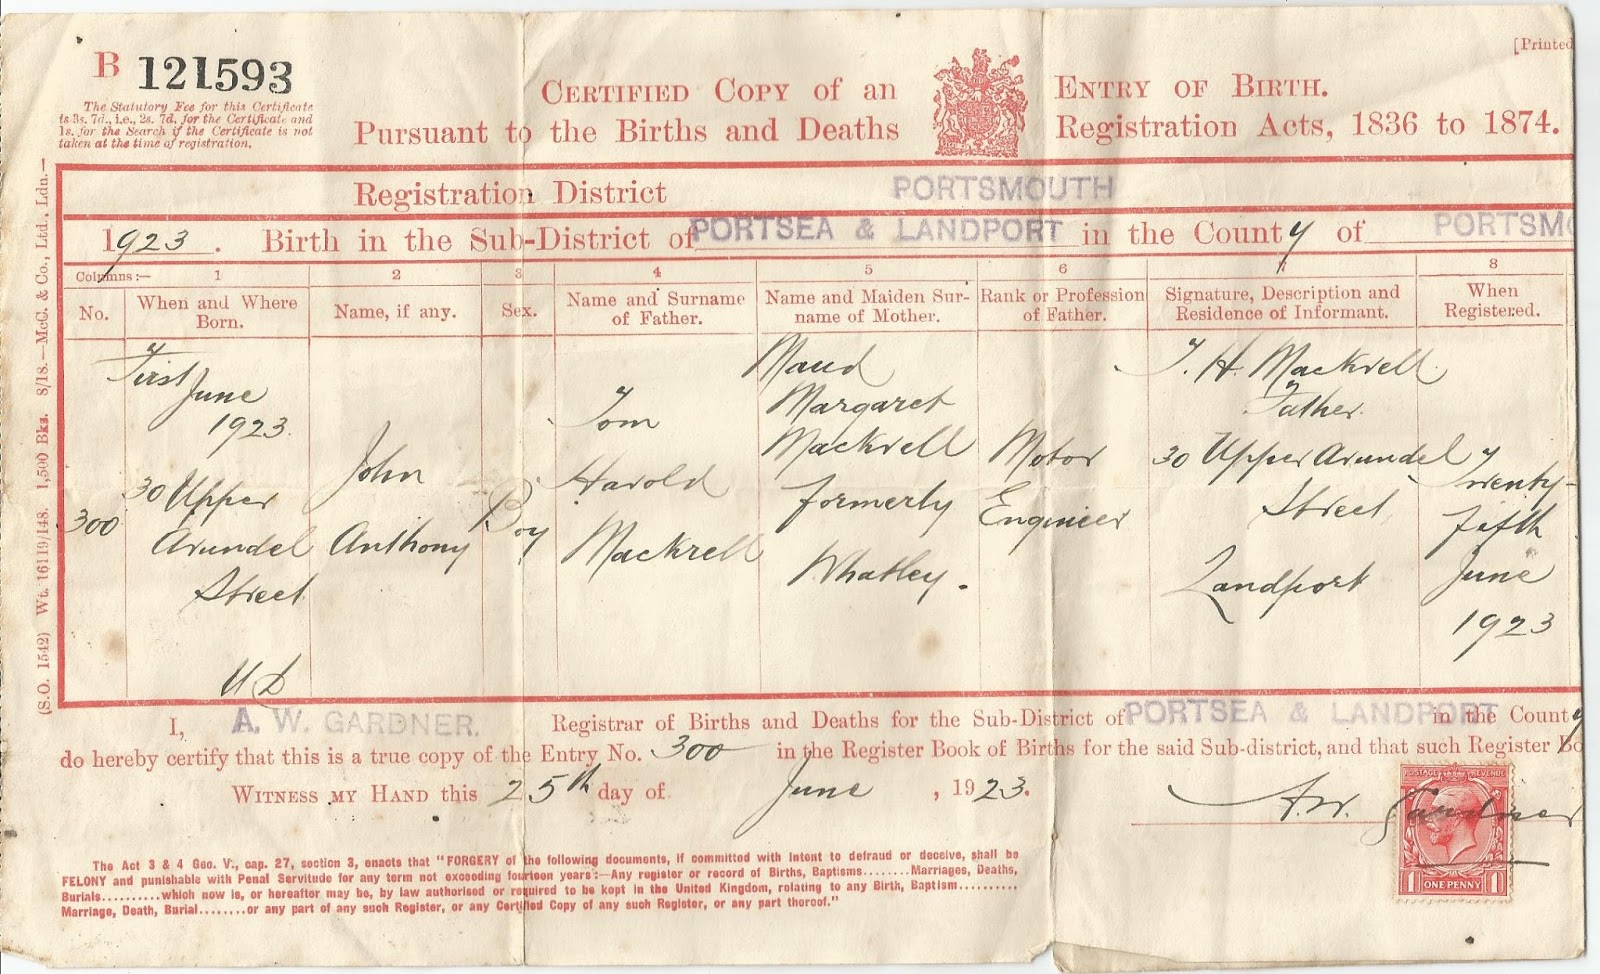 [Printed
B 121593
The Statutory Fee for this Certificate
is 3s. 7d., i.e., 2s. 7d. for the Certificate and
1s. for the Search if the Certificate is not
taken at the time of registration.
CERTIFIED COPY of an ENTRY OF BIRTH.
Pursuant to the Births and Deaths Registration Acts, 1836 to 1874.
(S.O. 1542) Wt. 16119/148. 1,500 Bks. 8/18.—McC. & Co., Ltd., Ldn.—
Registration District PORTSMOUTH
1923. Birth in the Sub-District of PORTSEA & LANDPORT in the County of PORTSMO
Columns:— 1 2 3 4 5 6 7 8
No. When and Where Born. Name, if any. Sex. Name and Surname of Father. Name and Maiden Surname of Mother. Rank or Profession of Father. Signature, Description and Residence of Informant. When Registered.
300
First
June
1923.
30 Upper
Arundel
Street
U D
John
Anthony
Boy
Tom
Harold
Mackrell
Maud
Margaret
Mackrell
formerly
Whatley.
Motor
Engineer
T. H. Mackrell.
Father.
30 Upper Arundel
Street,
Landport
Twenty-
fifth
June
1923
I, A. W. GARDNER. Registrar of Births and Deaths for the Sub-District of PORTSEA & LANDPORT in the County
do hereby certify that this is a true copy of the Entry No. 300 in the Register Book of Births for the said Sub-district, and that such Register Bo
WITNESS MY HAND this 25th day of June, 1923.
A.W. Gardner
POSTAGE REVENUE
1 ONE PENNY 1
The Act 3 & 4 Geo. V., cap. 27, section 3, enacts that "FORGERY of the following documents, if committed with intent to defraud or deceive, shall be
FELONY and punishable with Penal Servitude for any term not exceeding fourteen years:—Any register or record of Births, Baptisms........Marriages, Deaths,
Burials..........which now is, or hereafter may be, by law authorised or required to be kept in the United Kingdom, relating to any Birth, Baptism..........
Marriage, Death, Burial........or any part of any such Register, or any Certified Copy of any such Register, or any part thereof."